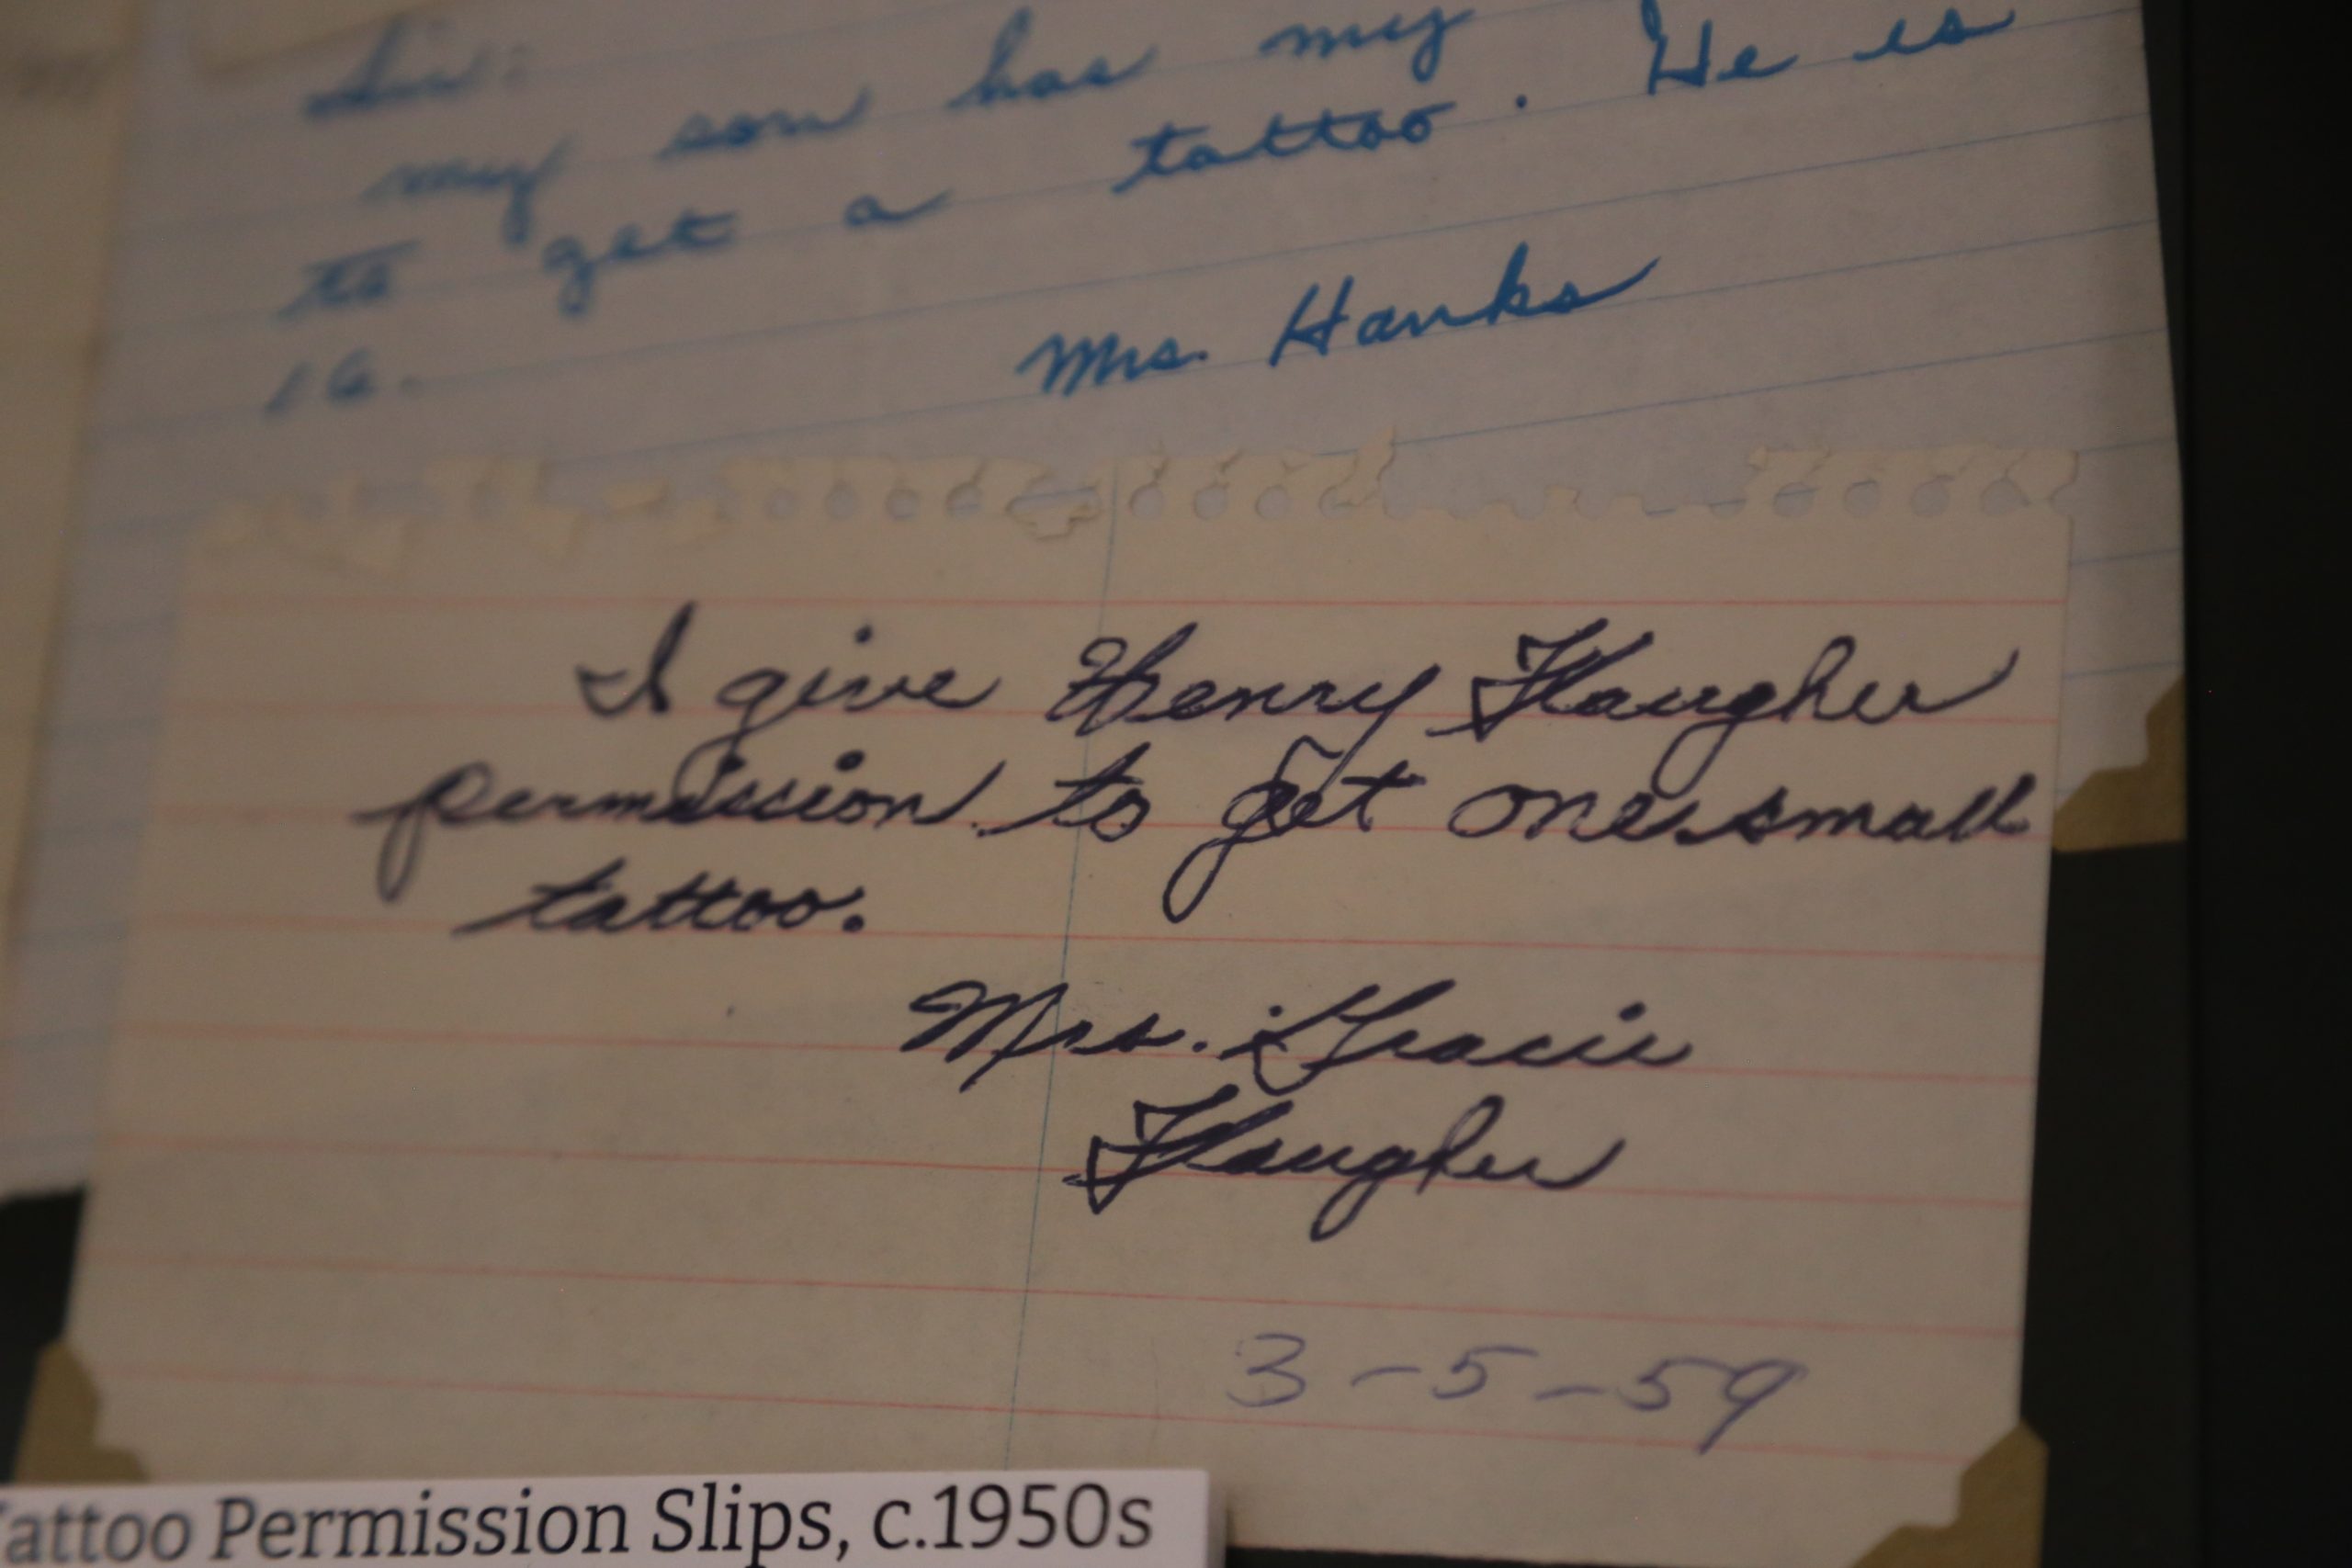 Sir:
my son has my
to get a tattoo. He is
16.
Mrs. Hanks
I give Henry Flaugher
permission to get one small
tattoo.
Mrs. Gracie
Flaugher
3-5-59
Tattoo Permission Slips, c.1950s